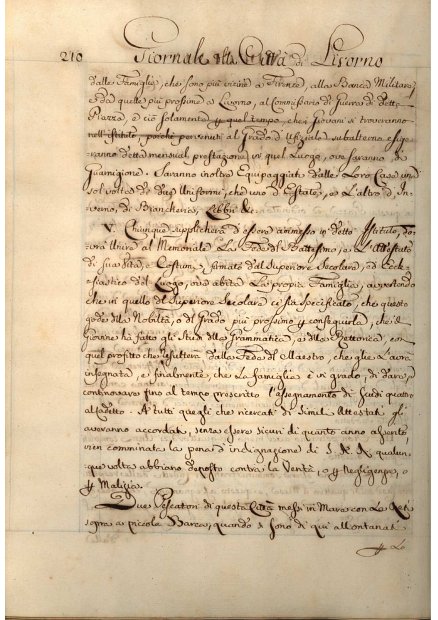 210 Giornale della Città di Livorno
dalle Famiglie, che sono più vicine a Firenze, alla Banca Militare,
e da quelle più prossime a Livorno, al Commissario di Guerra di detta
Piazza, e ciò solamente per quel tempo, che i Giovani si troveranno
nell'Istituto, perché pervenuti al Grado d'Ufiziale subalterno
ranno detta mensual prestazione in quel Luogo, ove saranno di
Guarnigione. Saranno inoltre Equipaggiati dalle Loro Case
sol volta di due Uniformi, che uno d'Estate, e L'altro d'In=
verno, di Biancheria, Libbri &c.
Chiunque supplicherà d'essere ammesso in detto Istituto, do=
verà Unire al Memoriale La Fede del Battesimo, e L'Attestato
di sua Vita, e Costumi, firmato dal Superiore Secolare, ed Eccle=
siastico del Luogo, ove abita La propria Famiglia, avvertendo
che in quello del Superiore Secolare ci sia specificato, che questo
gode della Nobiltà, o del Grado più prossimo per conseguirla, che il
Giovane ha fatto gli Studi della Grammatica, e della Rettorica, con
quel profitto che resulterà dalla Fede del Maestro, che gle L'averà
insegnata, e finalmente, che La famiglia è in grado, di dare, e
continovare fino al tempo prescritto l'assegnamento di Scudi quattro
al Cadetto. A tutti quegli che ricercati di Simili Attestati gli
averanno accordati, senza essere sicuri di quanto anno asserito
vien comminata la pena d'indignazione di S. A. R. qualun=
que volta abbiano esposto contro la Verità, o per Negligenza, o
per Malizia.
Due Pescatori di questa Città messisi in Mare con La Ret
sogna a piccola Barca, quando si sono di qui allontanati
per Lo